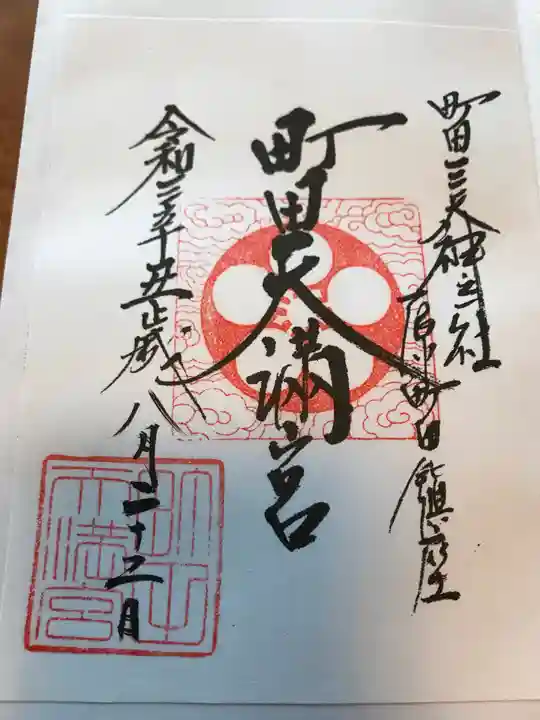 町田三天神之社
原町田鎮座
町田天満宮
令和三年辛丑歳
八月二十二日
町田天満宮